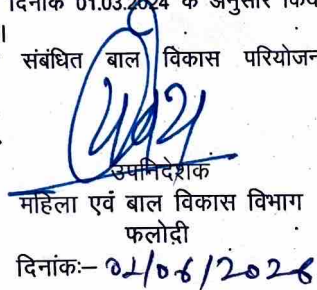 दिनांक 01.03.2024 के अनुसार किय
।
संबंधित बाल विकास परियोजन
उपनिदेशक
महिला एवं बाल विकास विभाग
फलोदी
दिनांकः– 02/06/2026